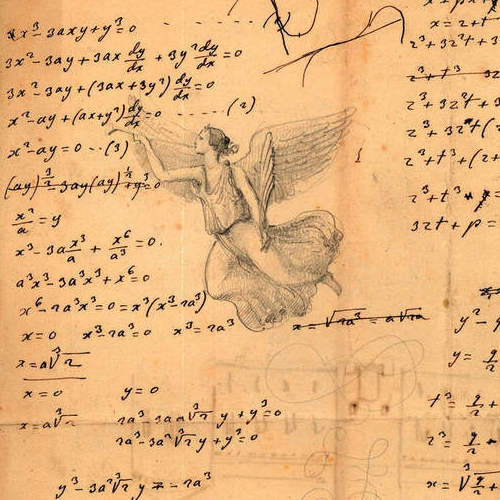 x³ - 3axy + y³ = 0
3x² - 3ay + 3ax dy/dx + 3y² dy/dx = 0
3x² - 3ay + (3ax + 3y²) dy/dx = 0
x² - ay + (ax + y²) dy/dx = 0 ------ (2)
x² - ay = 0 -- (3)
(ay)^3/2 - 3ay(ay)^1/2 + y³ = 0
x²/a = y
x³ - 3a x³/a + x⁶/a³ = 0.
a³x³ - 3a³x³ + x⁶ = 0
x⁶ - 2a³x³ = 0 = x³(x³ - 2a³)
x = 0 x³ - 2a³ = 0 x³ = 2a³
x = a∛2
x = 0 y = 0
x = a∛2 2a³ - 3aa∛2 y + y³ = 0
2a³ - 3a²∛2 y + y³ = 0
y³ - 3a²∛2 y = - 2a³
x = √2a³ = a√2a
x = z + t
z³ + 3z²t + 3
z³ + t³ 3z
z³ + 3z²t + 3
z³ + 3zt(z
z³ + t³ + (z+
z³ + t³
3zt + p =
y² -
y = q/2
t³ = q/2 +
z³ = q/2
x = ∛q/2 +